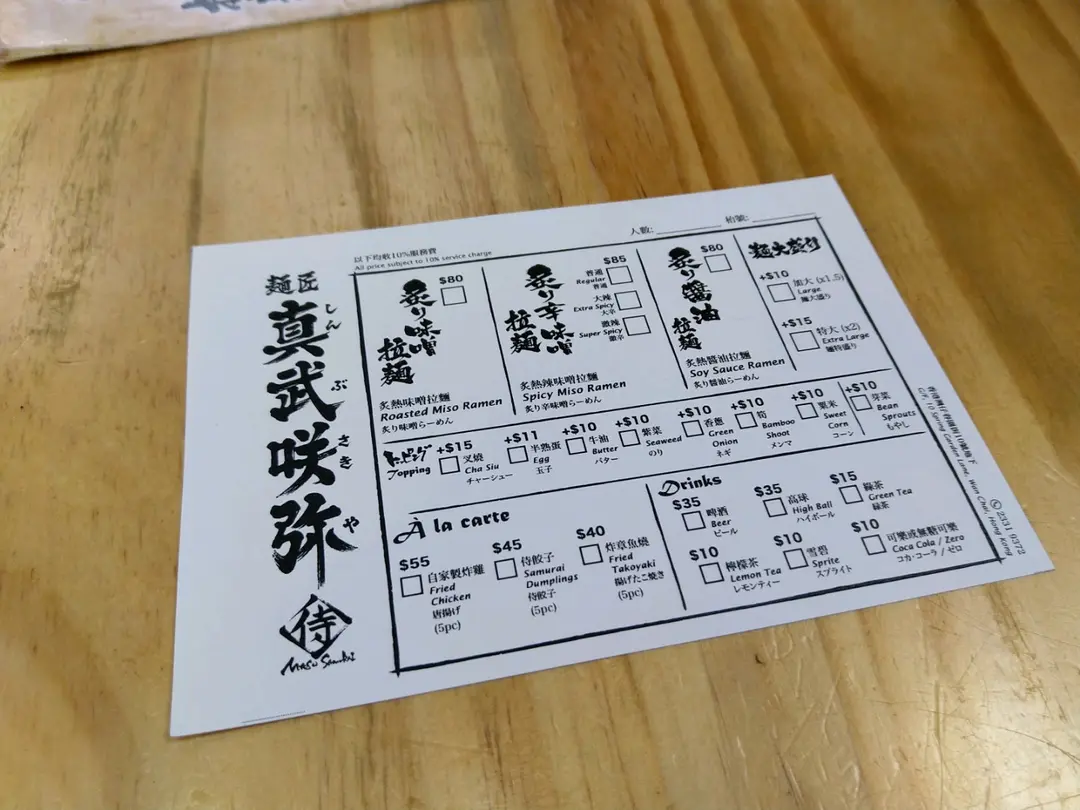 麺匠
真武咲弥
しんぶさきや
侍
以下均收10%服務費
All price subject to 10% service charge
人數: 枱號:
炙り味噌
拉麺
$80
炙熱味噌拉麵
Roasted Miso Ramen
炙り味噌らーめん
炙り辛味噌
拉麺
$85
普通
Regular
普通
大辣
Extra Spicy
大辛
激辣
Super Spicy
激辛
炙熱辣味噌拉麵
Spicy Miso Ramen
炙り辛味噌らーめん
炙り醤油
拉麺
$80
炙熱醬油拉麵
Soy Sauce Ramen
炙り醤油らーめん
麺大盛り
+$10
加大 (x1.5)
Large
麺大盛り
+$15
特大 (x2)
Extra Large
麺特盛り
トッピング
Topping
+$15
叉燒
Cha Siu
チャーシュー
+$11
半熟蛋
Egg
玉子
+$10
牛油
Butter
バター
+$10
紫菜
Seaweed
のり
+$10
香蔥
Green
Onion
ネギ
+$10
筍
Bamboo
Shoot
メンマ
+$10
粟米
Sweet
Corn
コーン
+$10
芽菜
Bean
Sprouts
もやし
À la carte
$55
自家製炸雞
Fried
Chicken
唐揚げ
(5pc)
$45
侍餃子
Samurai
Dumplings
侍餃子
(5pc)
$40
炸章魚燒
Fried
Takoyaki
揚げたこ焼き
(5pc)
Drinks
$35
啤酒
Beer
ビール
$35
高球
High Ball
ハイボール
$15
綠茶
Green Tea
緑茶
$10
檸檬茶
Lemon Tea
レモンティー
$10
雪碧
Sprite
スプライト
$10
可樂或無糖可樂
Coca Cola / Zero
コカ·コーラ / ゼロ
G/F, 10 Spring Garden Lane, Wan Chai, Hong Kong
2331 0372